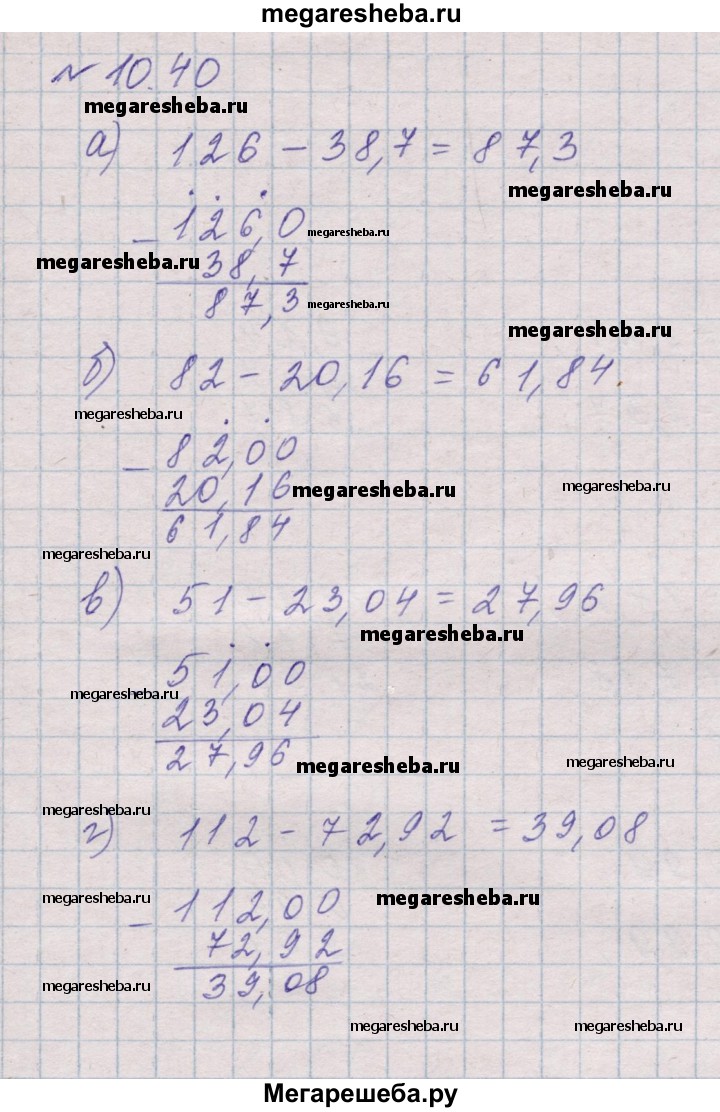 megaresheba.ru
№ 10.40
megaresheba.ru
а) 126 - 38,7 = 87,3
megaresheba.ru
- 126,0 megaresheba.ru
megaresheba.ru 38,7
87,3 megaresheba.ru
megaresheba.ru
б) 82 - 20,16 = 61,84.
megaresheba.ru
- 82,00
20,16 megaresheba.ru megaresheba.ru
61,84
megaresheba.ru
в) 51 - 23,04 = 27,96
megaresheba.ru
51,00
megaresheba.ru
23,04
27,96 megaresheba.ru megaresheba.ru
megaresheba.ru
г) 112 - 72,92 = 39,08
megaresheba.ru megaresheba.ru
- 112,00
72,92
megaresheba.ru 39,08
megaresheba.ru megaresheba.ru
Мегарешеба.ру